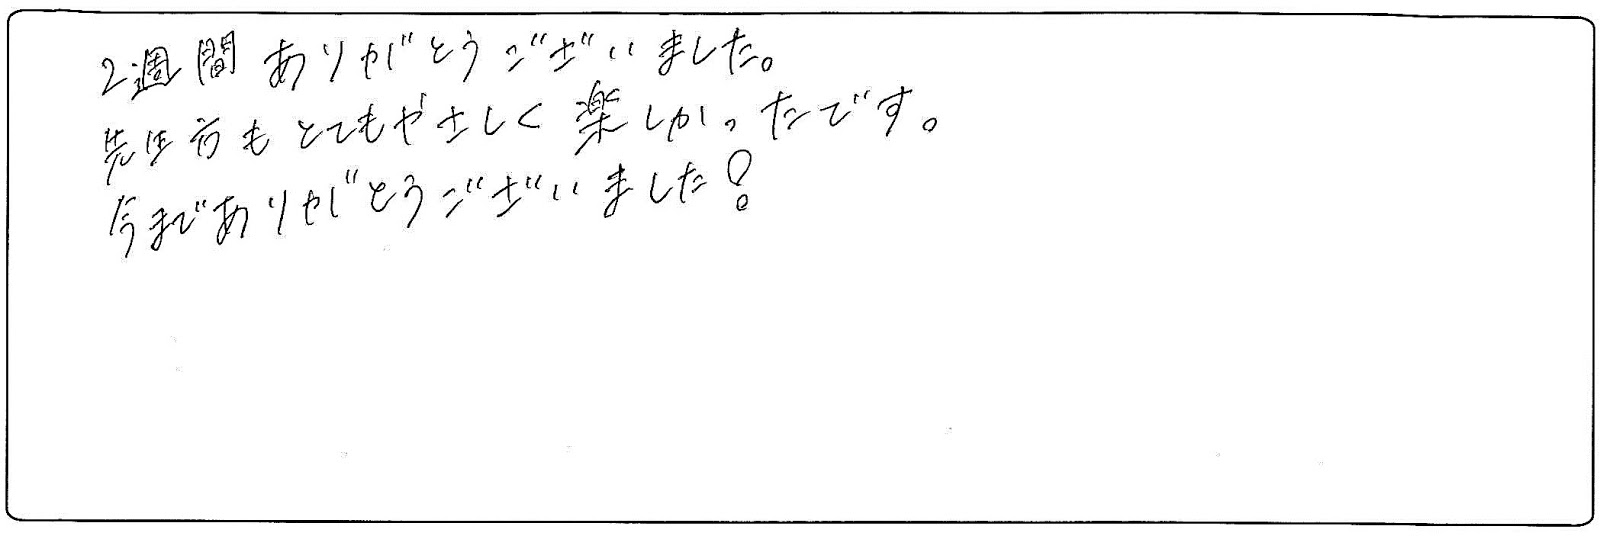 2週間ありがとうございました。
先生方もとてもやさしく楽しかったです。
今までありがとうございました!